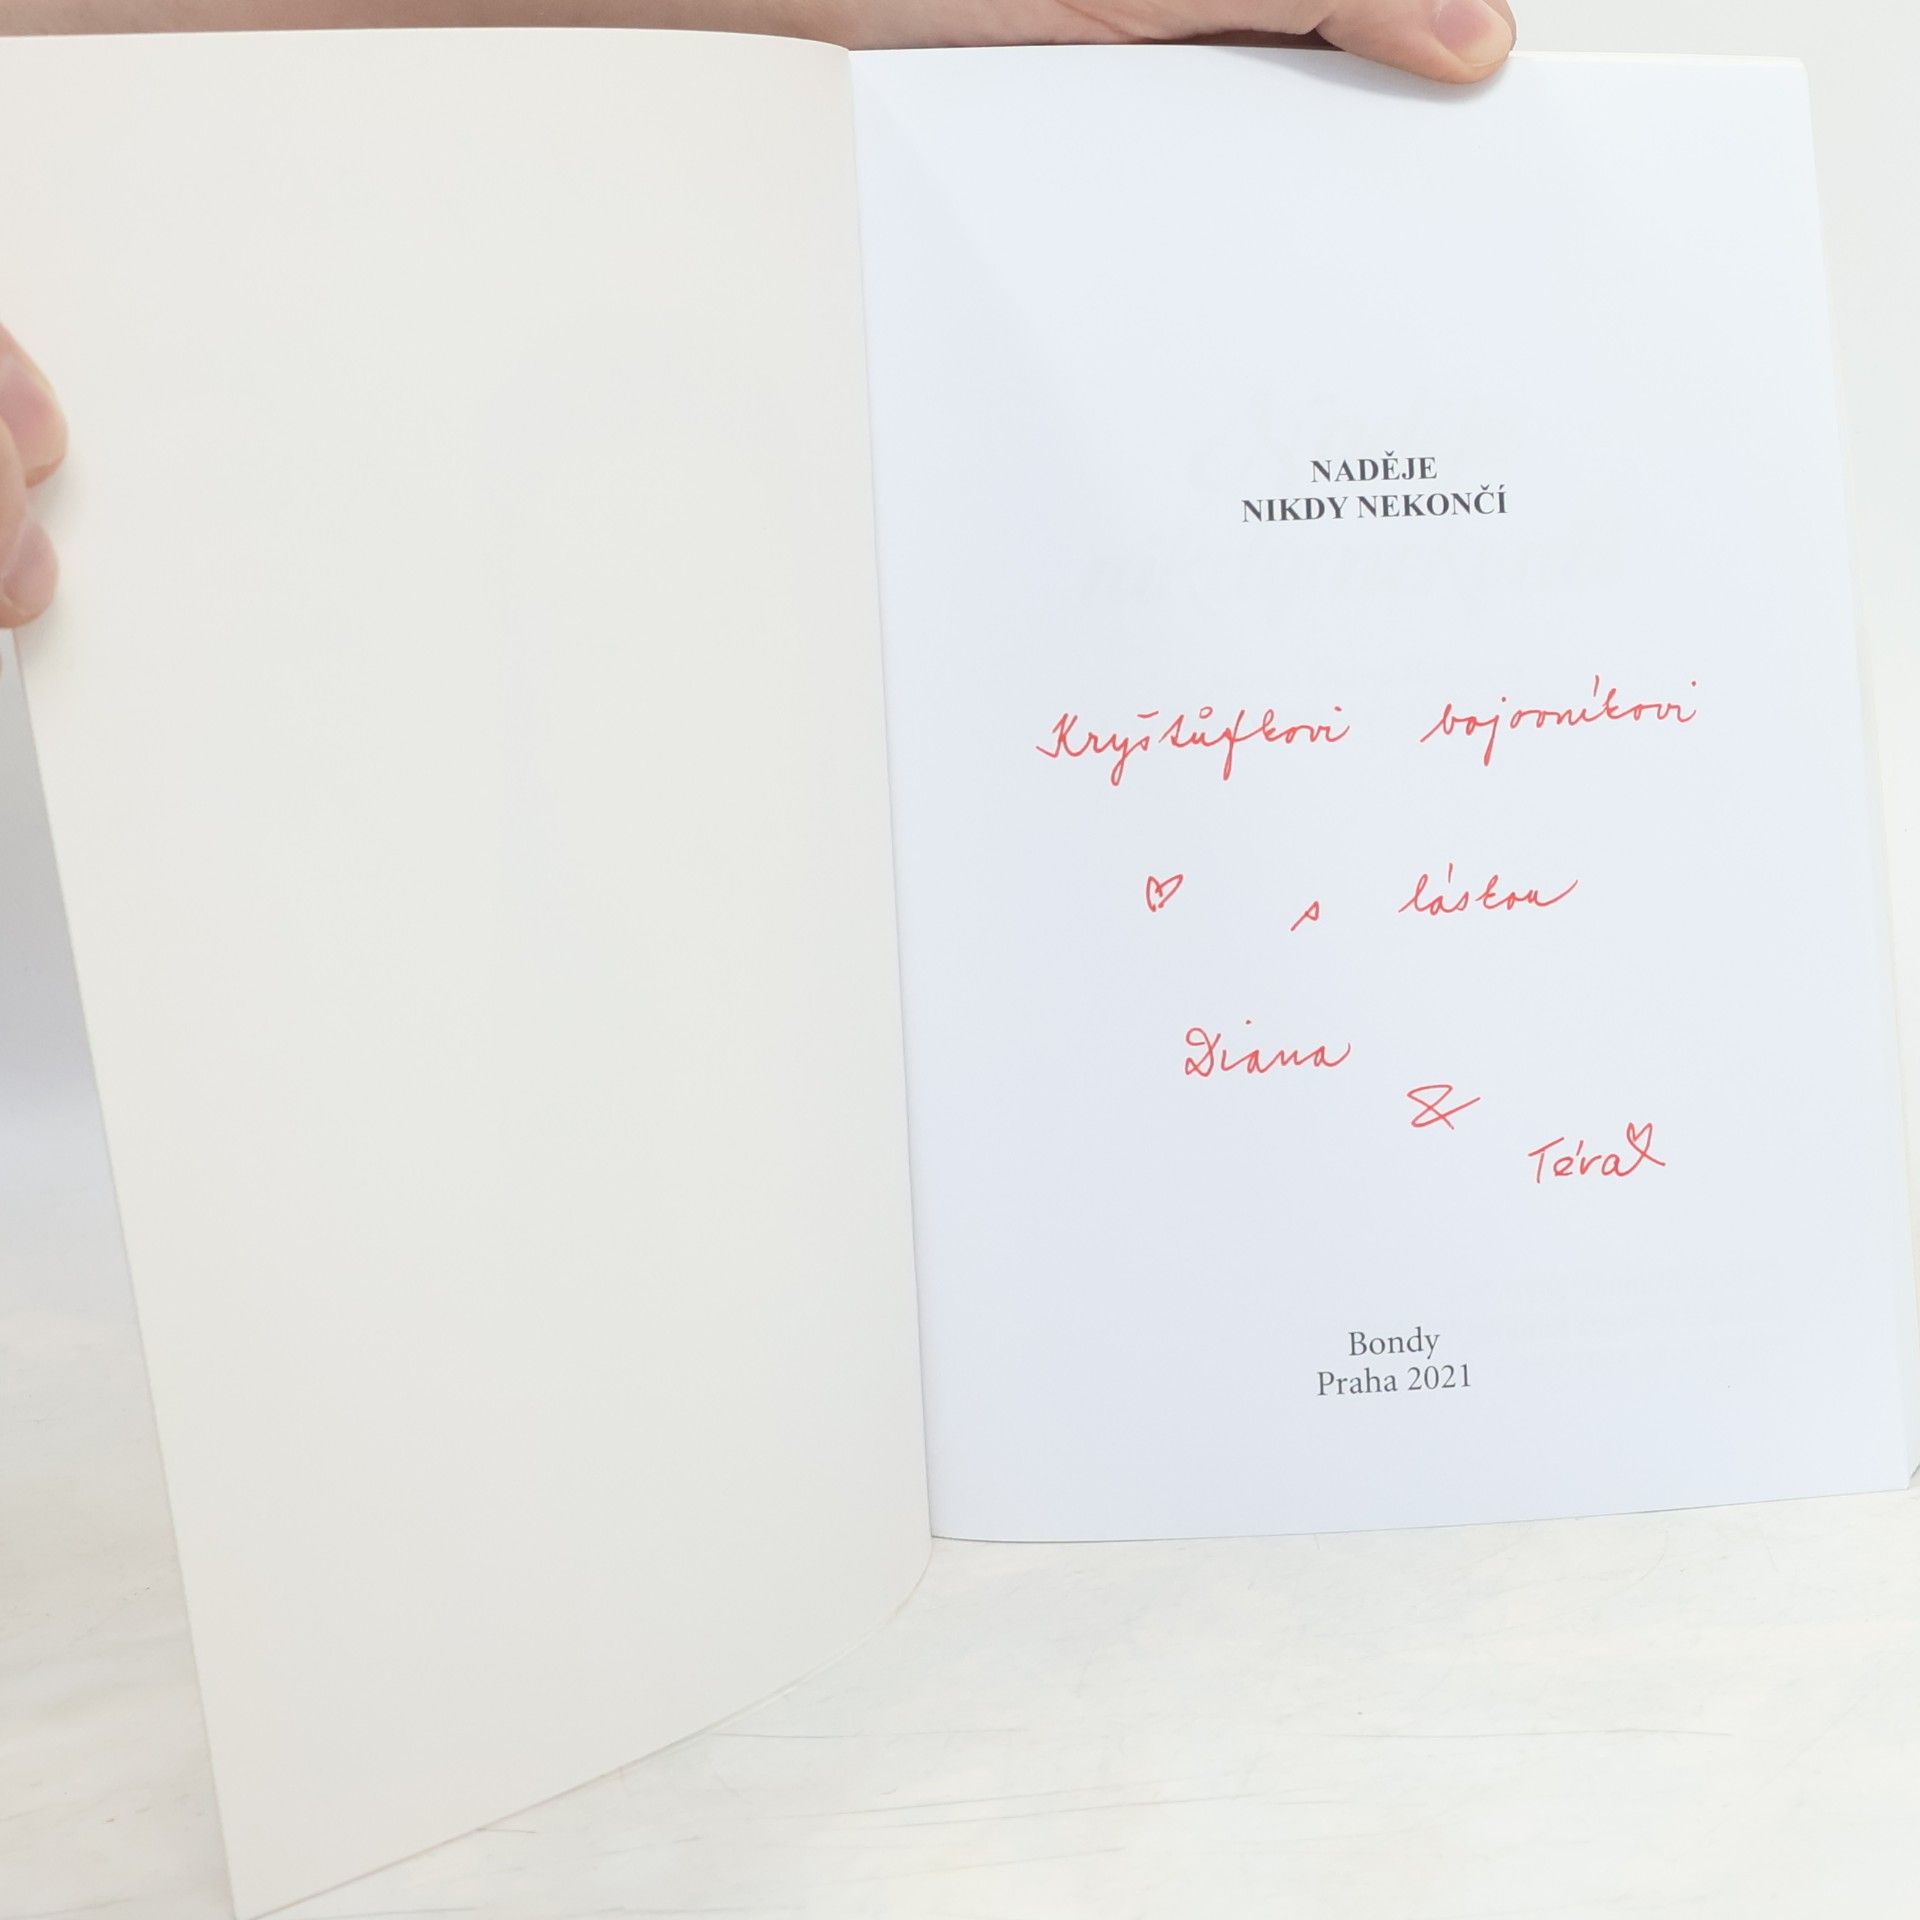 NADĚJE
NIKDY NEKONČÍ
Kryštůfkovi bojovníkovi
s láskou
Diana
&
Téra
Bondy
Praha 2021